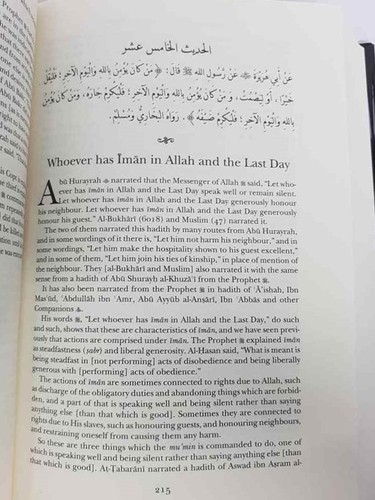 الحديث الخامس عشر
عَنْ أَبِي هُرَيْرَةَ ﷺ عَنْ رَسُولِ اللهِ ﷺ قَالَ: ﴿ مَنْ كَانَ يُؤْمِنُ بِاللهِ وَالْيَوْمِ الآخِرِ؛ فَلْيَقُلْ
خَيْرًا، أَوْ لِيَصْمُتْ، وَمَنْ كَانَ يُؤْمِنُ بِاللهِ وَالْيَوْمِ الآخِرِ؛ فَلْيُكْرِمْ جَارَهُ، وَمَنْ كَانَ يُؤْمِنُ
بِاللهِ وَالْيَوْمِ الآخِرِ؛ فَلْيُكْرِمْ ضَيْفَهُ ﴾. رَوَاهُ الْبُخَارِيُّ وَمُسْلِمٌ.
Whoever has Īmān in Allah and the Last Day
Abū Hurayrah narrated that the Messenger of Allah ﷺ said, "Let who-
ever has īmān in Allah and the Last Day speak well or remain silent.
Let whoever has īmān in Allah and the Last Day generously honour
his neighbour. Let whoever has īmān in Allah and the Last Day generously
honour his guest." Al-Bukhārī (6018) and Muslim (47) narrated it.
The two of them narrated this hadith by many routes from Abū Hurayrah,
and in some wordings of it there is, "Let him not harm his neighbour," and in
some wordings, "Let him make the hospitality shown to his guest excellent,"
and in some of them, "Let him join his ties of kinship," in place of mention of
the neighbour. They [al-Bukhārī and Muslim] also narrated it with the same
sense from a hadith of Abū Shurayḥ al-Khuzā'ī from the Prophet ﷺ.
It has also been narrated from the Prophet ﷺ in hadith of 'Ā'ishah, Ibn
Mas'ūd, 'Abdullāh ibn 'Amr, Abū Ayyūb al-Anṣārī, Ibn 'Abbās and other
Companions
His words ﷺ, "Let whoever has īmān in Allah and the Last Day," do such
and such, shows that these are characteristics of īmān, and we have seen previ-
ously that actions are comprised under īmān. The Prophet ﷺ explained īmān
as steadfastness (ṣabr) and liberal generosity. Al-Ḥasan said, "What is meant is
being steadfast in [not performing] acts of disobedience and being liberally
generous with [performing] acts of obedience."
The actions of īmān are sometimes connected to rights due to Allah, such
as discharge of the obligatory duties and abandoning things which are forbid-
den, and a part of that is speaking well and being silent rather than saying
anything else [than that which is good]. Sometimes they are connected to
rights due to His slaves, such as honouring guests, and honouring neighbours,
and restraining oneself from causing them any harm.
So these are three things which the mu'min is commanded to do, one of
which is speaking well and being silent rather than saying anything else [than
that which is good]. Aṭ-Ṭabarānī narrated a hadith of Aswad ibn Aṣram al-
215